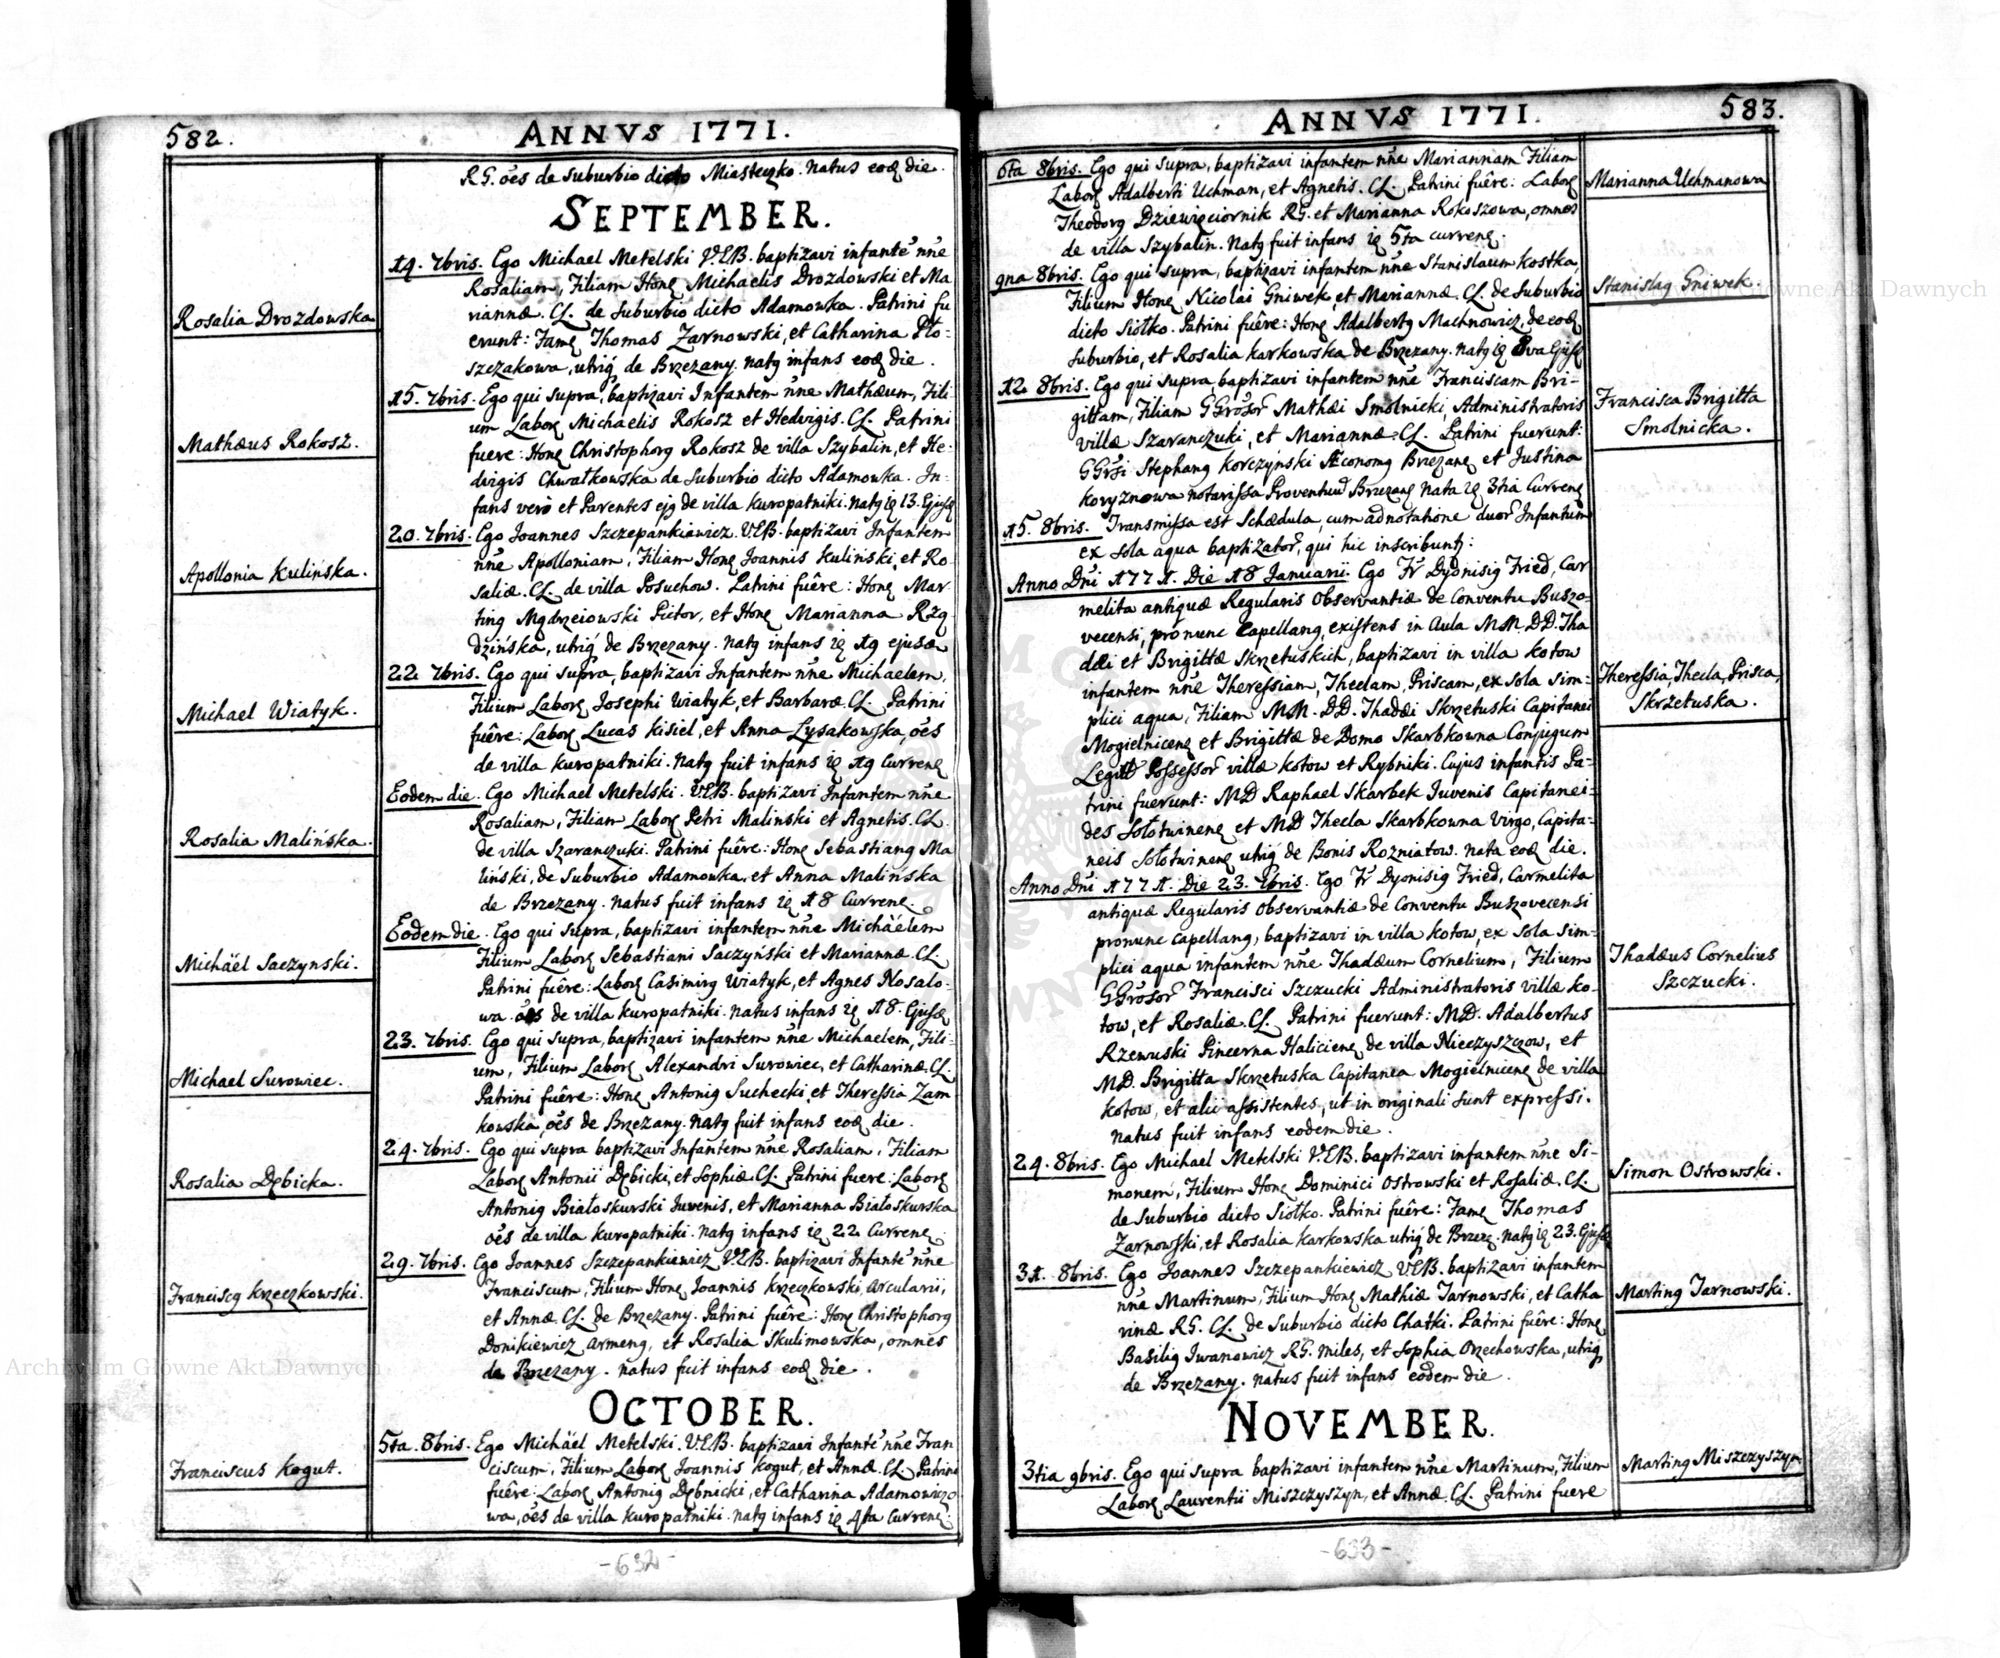 582.
ANNVS 1771.
RG. óes de Suburbio dicto Miasteczko. Natus eodē die.
SEPTEMBER.
14. 7bris. Ego Michael Metelski V.E.B. baptizavi infantē n̄ne
Rosalia Drozdowska
Rosaliam, Filiam Honę Michaelis Drozdowski et Ma
riannæ. CL. de Suburbio dicto Adamowka. Patrini fu
erunt: Famę Thomas Zarnowski, et Catharina Pło-
szczakowa, utriq́ de Brzezany. natq infans eodē die.
15. 7bris. Ego qui supra, baptizavi Infantem n̄ne Mathæum, Fili-
Mathæus Rokosz.
um Laborę Michaelis Rokosz et Hedvigis. CL. Patrini
fuere: Honę Christophorq Rokosz de villa Szybalin, et He-
dvigis Chwałkowska de Suburbio dicto Adamowka. In-
fans verò et Parentes ejq de villa Kuropatniki. natq ię 13. Ejusdē
20. 7bris. Ego Joannes Szczepankiewicz. V.E.B. baptizavi Infantem
Apollonia Kulińska.
n̄ne Apolloniam, Filiam Honę Joannis Kulinski, et Ro-
saliæ. CL. de villa Posuchow. Patrini fuêre: Honę Mar-
tinq Mądrzeiowski Pictor, et Honę Marianna Rzą-
dzińska, utriq́ de Brzezany. natq infans ię 19 ejusdē
22 7bris. Ego qui supra, baptizavi Infantem n̄ne Michaelem,
Michael Wiatyk.
Filium Laborę Josephi Wiatyk, et Barbaræ. CL. Patrini
fuêre: Laborę Lucas Kisiel, et Anna Lysakowska, óes
de villa Kuropatniki. natq fuit infans ię 19 Currenę
Eodem die. Ego Michael Metelski. V.E.B. baptizavi Infantem n̄ne
Rosalia Malińska.
Rosaliam, Filiam Laborę Petri Malinski et Agnetis. CL.
de villa Szaranczuki. Patrini fuêre: Honę Sebastianq Ma
liński, de Suburbio Adamowka, et Anna Malińska
de Brzezany. natus fuit infans ię 18 Currenę.
Eodem die. Ego qui supra, baptizavi infantem n̄ne Michäëlem
Michäël Saczynski.
Filium Laborę Sebastiani Saczyński et Mariannæ CL.
Patrini fuêre: Laborę Casimirq Wiatyk, et Agnes Nosalo-
wa. óes de villa Kuropatniki. natus infans ię 18. Ejusdē
23. 7bris. Ego qui supra, baptizavi infantem n̄ne Michaelem, Fili-
Michael Surowiec.
um, Filium Laborę Alexandri Surowiec, et Catharinæ. CL.
Patrini fuêre: Honę Antoniq Suchecki, et Theressia Zam-
kowska, óes de Brzezany. Natq fuit infans eodē die.
24. 7bris. Ego qui supra baptizavi Infantem n̄ne Rosaliam, Filiam
Rosalia Dębicka.
Laborę Antonii Dębicki, et Sophiæ CL. Patrini fuere: Laborę
Antoniq Białoskurski Juvenis, et Marianna Białoskurska
óes de villa Kuropatniki. natq infans ię 22 Currenę.
29. 7bris. Ego Joannes Szczepankiewicz V.E.B. baptizavi Infantē n̄ne
Franciscq Krzeczkowski.
Franciscum, Filium Honę Joannis Krzeczkowski, arcularii,
et Annæ. CL. de Brzezany. Patrini fuêre: Honę Christophorq
Donikiewicz Armenq, et Rosalia Skulimowska, omnes
de Brzezany. natus fuit infans eodē die.
OCTOBER.
5ta. 8bris. Ego Michäël Metelski. V.E.B. baptizavi Infantē n̄ne Fran
Franciscus Kogut.
ciscum, Filium Laborę Joannis Kogut, et Annæ. CL. Patrini
fuêre: Laborę Antoniq Dębnicki, et Catharina Adamowiczo
wa, óes de villa Kuropatniki. natq infans ię 4ta Currenę.
-632-
ANNVS 1771.
583.
6ta 8bris. Ego qui supra, baptizavi infantem n̄ne Mariannam Filiam
Marianna Uchmanowa
Laborę Adalberti Uchman, et Agnetis. CL. Patrini fuêre: Laborę
Theodorq Dziewięciornik RG. et Marianna Rokoszowa, omnes
de villa Szybalin. Natq fuit infans ię 5ta currenę.
9na 8bris. Ego qui supra, baptizavi infantem n̄ne Stanislaum Kostka,
Stanislaq Gniwek.
Filium Honę Nicolai Gniwek, et Mariannæ. CL. de Suburbio
dicto Siołko. Patrini fuêre: Honę Adalbertq Machnowicz, de eodē
Suburbio, et Rosalia Karkowska de Brzezany. Natq ię 8va Ejusdē
12 8bris. Ego qui supra baptizavi infantem n̄ne Franciscam Bri-
Francisca Brigitta
Smolnicka.
gittam, Filiam GGrosor̃ Mathæi Smolnicki, Administratoris
villæ Szaranczuki, et Mariannæ. CL. Patrini fuerunt:
GGrśi Stephanq Korczyński Æconomq Brzezanę et Justina
Koryznowa notarissa Proventuū Brzezanę Nata ię 3tia Currenę
15. 8bris. Transmissa est Schædula, cum adnotatione duor̃ Infantum
ex sola aqua baptizator̃, qui hic inscribuntq:
Anno Dn̄i 1771. Die 18 Januarii. Ego Fr̃ Dyonisiq Fried, Car
melita antiquæ Regularis Observantiæ de Conventu Buszo-
vecensi, pronunc Capellanq, existens in Aula M.M. D.D. Tha
dæi et Brigittæ Skrzetuskich, baptizavi in villa Kotow
Theressia, Thecla, Prisca,
Skrzetuska.
infantem n̄ne Theressiam, Theclam, Priscam, ex sola sim-
plici aqua, Filiam M.M. D.D. Thadæi Skrzetuski Capitanei
Mogielnicenę et Brigittæ de Domo Skarbkowna Conjugum
Legitt̃ Possessor̃ villæ Kotow et Rybniki. Cujus infantis Pa-
trini fuerunt: MD Raphael Skarbek Juvenis Capitanei-
des Sołotwinenę et MD Thecla Skarbkowna Virgo, Capita-
neis Sołotwinenę utriq́ de Bonis Rozniatow. Nata eodē die.
Anno Dn̄i 1771. Die 23. 7bris. Ego Fr̃ Dyonisiq Fried, Carmelita
antiquæ Regularis Observantiæ de Conventu Buszovecensi
pronunc Capellanq, baptizavi in villa Kotow, ex sola sim-
Thadæus Cornelius
Szczucki.
plici aqua infantem n̄ne Thadæum Cornelium, Filium
GGrosor̃ Francisci Szczucki Administratoris villæ Ko-
tow, et Rosaliæ. CL. Patrini fuerunt: MD. Adalbertus
Rzewuski Pincerna Halicienę de villa Nieczyszczow, et
MD. Brigitta Skrzetuska Capitanea Mogielnicenę de villa
Kotow, et alii assistentes, ut in originali sunt expressi.
natus fuit infans eodem die.
24. 8bris. Ego Michael Metelski V.E.B. baptizavi infantem n̄ne Si-
Simon Ostrowski.
monem, Filium Honę Dominici Ostrowski et Rosaliæ. CL.
de Suburbio dicto Siołko. Patrini fuêre: Famę Thomas
Zarnowski, et Rosalia Karkowska utriq́ de Brzezę. natq ię 23. Ejusdē
31. 8bris. Ego Joannes Szczepankiewicz V.E.B. baptizavi infantem
Martinq Tarnowski.
n̄ne Martinum, Filium Honę Mathiæ Tarnowski, et Catha
rinæ RG. CL. de Suburbio dicto Chatki. Patrini fuêre: Honę
Basiliq Iwanowicz RG. miles, et Sophia Orzechowska, utriq́
de Brzezany. natus fuit infans eodem die.
NOVEMBER.
3tia 9bris. Ego qui supra baptizavi infantem n̄ne Martinum, Filium
Martinq Miszczyszyn
Laborę Laurentii Miszczyszyn, et Annæ. CL. Patrini fuere
-633-
Archiwum Główne Akt Dawnych